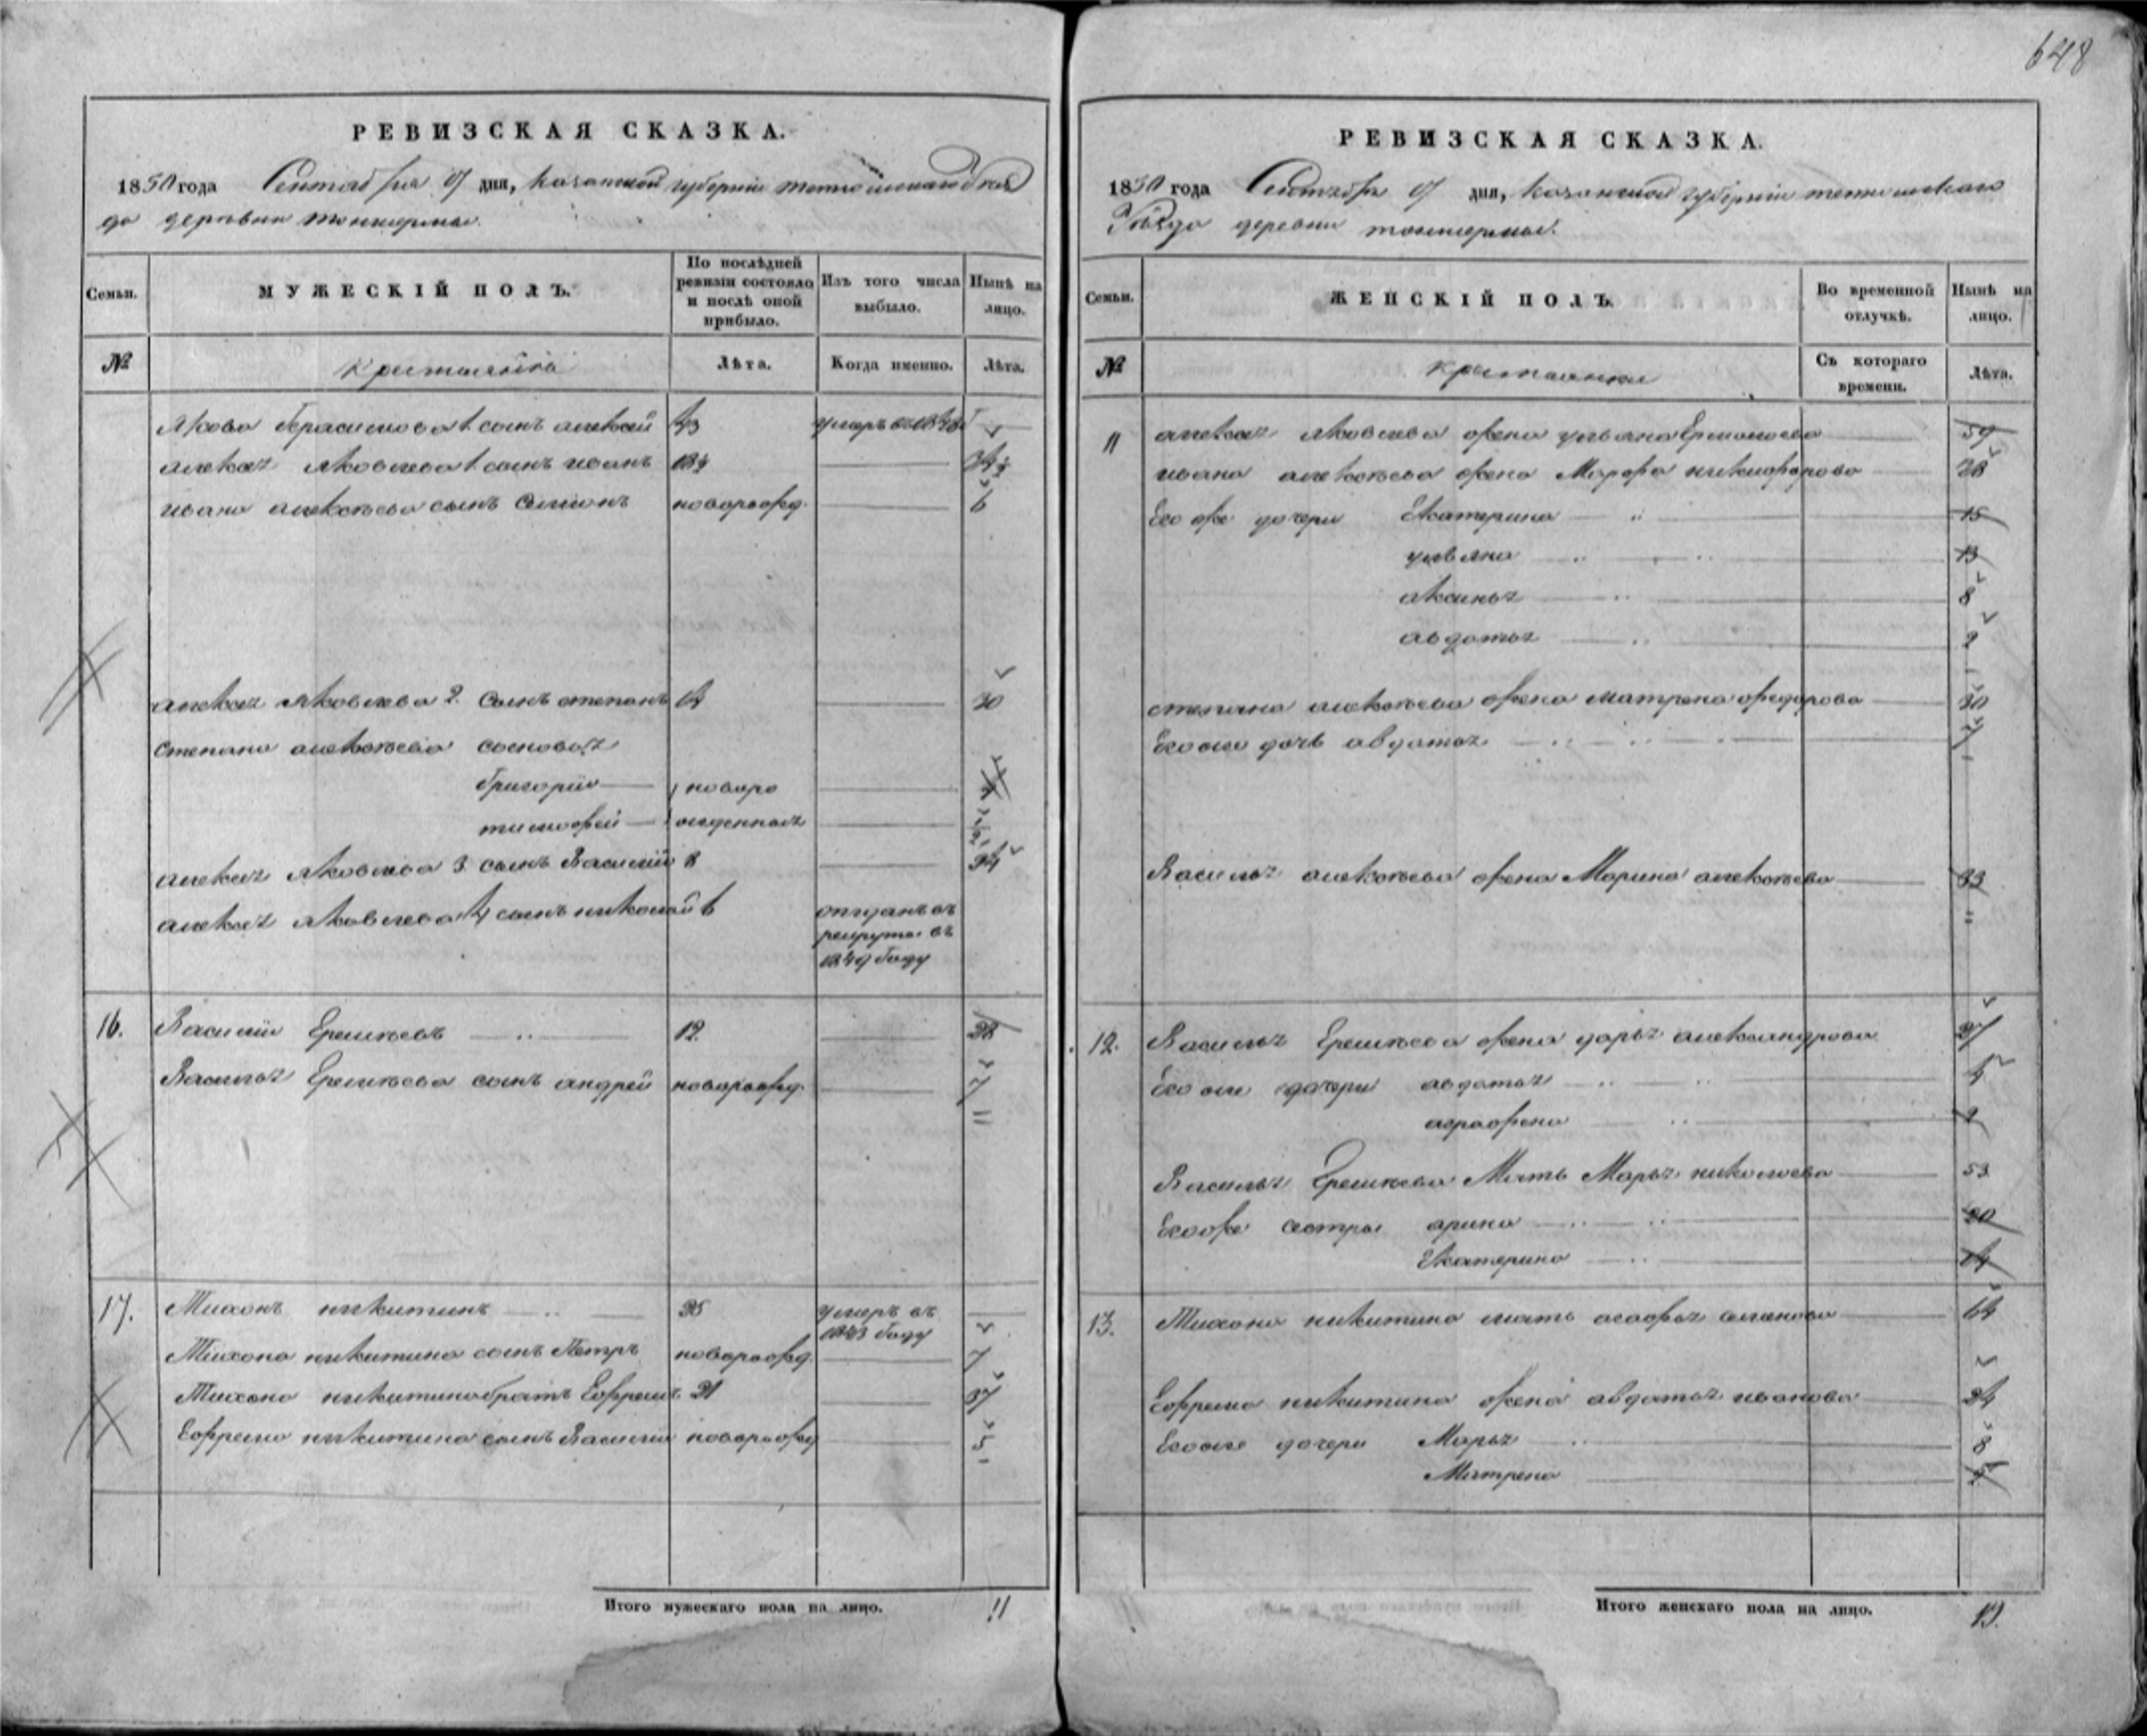 648
РЕВИЗСКАЯ СКАЗКА.
1850 года Сентября 17 дня, Казанской губернiи Тетюшскаго Уез
да деревни
Семьи.
МУЖЕСКІЙ ПОЛЪ.
По послѣдней ревизіи состояло и послѣ оной прибыло.
Изъ того числа выбыло.
Нынѣ на лицо.
№
крестьяне
Лѣта.
Когда именно.
Лѣта.
Якова Герасимова 1. сынъ алексей 43 умеръ въ 1848
алексея яковлева 1. сынъ иванъ 18½ 34½
ивана алексеева сынъ Семионъ новорожд. 6
алексея яковлева 2. сынъ степанъ 14 30
степана алексеева сыновья
григорий новоро
тимофей жденныя
алексея яковлева 3 сынъ Василий 8 24
алексея яковлева 4 сынъ николай 6 отданъ въ
рекруты въ
1849 году
16. Василий Еремеевъ 12. 28
Василья Еремеева сынъ андрей новорожд. 7
17. Тихонъ никитинъ 25 умеръ въ
1843 году
Тихона никитина сынъ Петръ новорожд. 7
Тихона никитина братъ Ефремъ 21 37
Ефрема никитина сынъ Василий новорожд 5
Итого мужескаго пола на лицо. 11
РЕВИЗСКАЯ СКАЗКА.
1850 года Сентября 17 дня, Казанской губернiи тетюшскаго
Уезда деревни
Семьи.
ЖЕНСКІЙ ПОЛЪ.
Во временной отлучкѣ.
Нынѣ на лицо.
№
крестьянки
Съ котораго времени.
Лѣта.
11 алексея яковлева жена ульяна Ермолаева 59
ивана алексеева жена Марфа никифорова 38
Его же дочери Екатерина 15
ульяна 13
аксинья 8
авдотья 2
степана алексеева жена матрена федорова 30
Его же дочь авдотья 7
Василья алексеева жена Марина алексеева 23
12. Василья Еремеева жена дарья александрова 27
Его же дочери авдотья 4
аграфена 2
Василья Еремеева Мать Марья николаева 53
Его же сестры арина 20
Екатерина 14
13. Тихона никитина мать агафья 64
Ефрема никитина жена авдотья иванова 34
Его же дочери Марья 8
Матрена
Итого женскаго пола на лицо. 19.